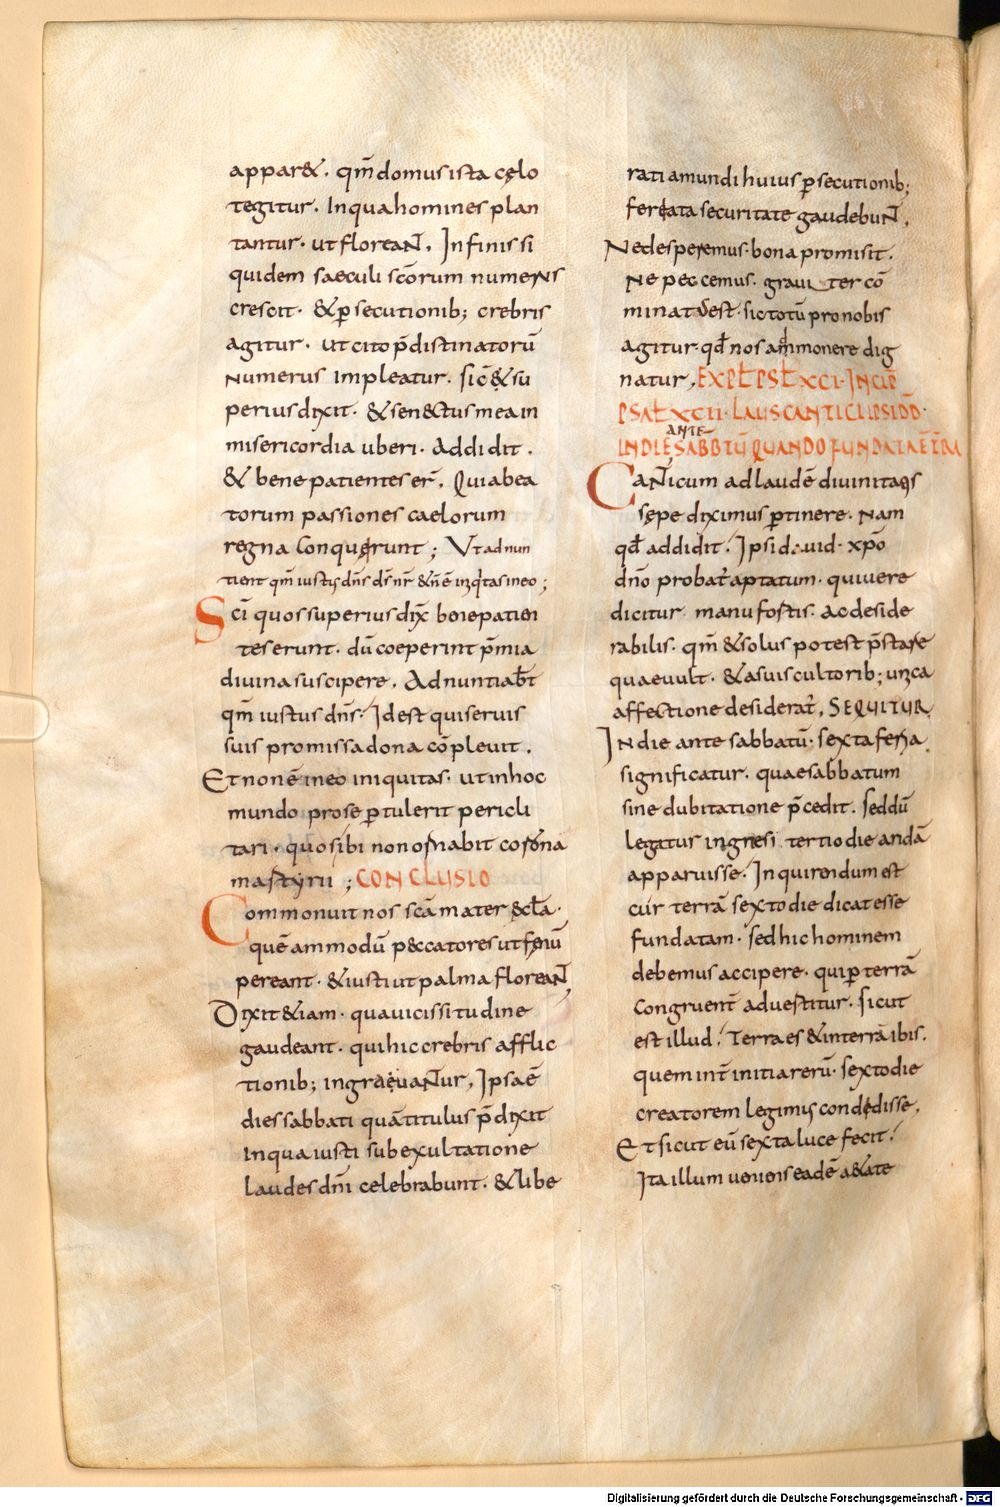 appar&. qm̅ domus ista cęlo
tegitur. In qua homines plan
tantur. ut floreant. In finis si
quidem saeculi sc̅orum numerus
crescit. & p̱secutionib; crebris
agitur. ut cito p̅distinatorū
numerus impleatur. sic̅ & su
perius dixit. & senectus mea in
misericordia uberi. Addidit.
& bene patientes er̅. Quia bea
torum passiones caelorum
regna conquęrunt; Ut adnun
tient qm̅ iustus dn̅s ds̅ nr̅ & ñ ē iniq̇tas in eo;
Sc̅i quos superius dix̅ bene patien
tes erunt. dū coeperint p̅mia
diuina suscipere. Adnuntiab̅t
qm̅ iustus dn̅s. Id est qui seruis
suis promissa dona cōpleuit.
Et non ē in eo iniquitas. ut in hoc
mundo pro se p̱tulerit pericli
tari. quo sibi non ornabit coronā
martyrii; CONCLUSIO
Commonuit nos sc̅a mater &cl̅a.
quē ammodū peccatores ut fęnū
pereant. & iusti ut palma floreant,
Dixit &iam. qua uicissitudine
gaudeant. qui hic crebris afflic
tionib; ingraeuantur, Ipsa ē
dies sabbati quā titulus p̅dixit
in qua iusti sub exultatione
laudes dn̅i celebrabunt. & libe
rati a mundi huius p̱secutionib;
fercata securitate gaudebunt.
Ne desperemus. bona promisit.
Ne peccemus. grauiter cō
minatus est. sic totū pro nobis
agitur. qd̅ nos ammonere dig
natur, EXPL̅ PSL̅ XCI. INCIP̅
PSAL̅ XCII. LAUS CANTICI IPSI DD̅.
ANTE
IN DIE SABBTŪ QUANDO FUNDATA E̅ T̅RA
Canticum ad laudē diuinitatis
sępe diximus p̱tinere. Nam
qd̅ addidit. Ipsi dauid. xp̅o
dn̅o probat̅ aptatum. qui uere
dicitur manu fortis. ac deside
rabilis. qm̅ & solus potest p̅stare
quae uult. & a suis cultorib; unica
affectione desiderat̅, SEQUITUR
In die ante sabbatū. sexta feria
significatur. quae sabbatum
sine dubitatione p̅cedit. sed dū
legitur in genesi tertio die aridā
apparuisse. Inquirendum est
cur terrā sexto die dicat esse
fundatam. sed hic hominem
debemus accipere. qui p̱ terrā
congruent̅ aduertitur. sicut
est illud. Terra es & in terrā ibis.
quem int̅ initia rerū. sexto die
creatorem legimus condidisse.
Et sicut eū sexta luce fecit.
Ita illum ueniens eadē a&ate
Digitalisierung gefördert durch die Deutsche Forschungsgemeinschaft - DFG